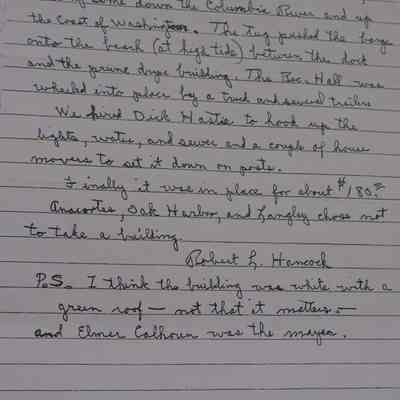 came down the Columbia River and up
the Coast of Washington. The tug pushed the barge
onto the beach (at high tide) between the dock
and the prune dryer building. The Rec. Hall was
wheeled into place by a truck and several trailers
We hired Dick Hastie to hook up the
lights, water, and sewer and a couple of house
movers to set it down on posts.
Finally it was in place for about $180.
Anacortes, Oak Harbor, and Langley chose not
to take a building.
Robert L. Hancock
P.S. I think the building was white with a
green roof — not that it matters —
and Elmer Calhoun was the mayor.